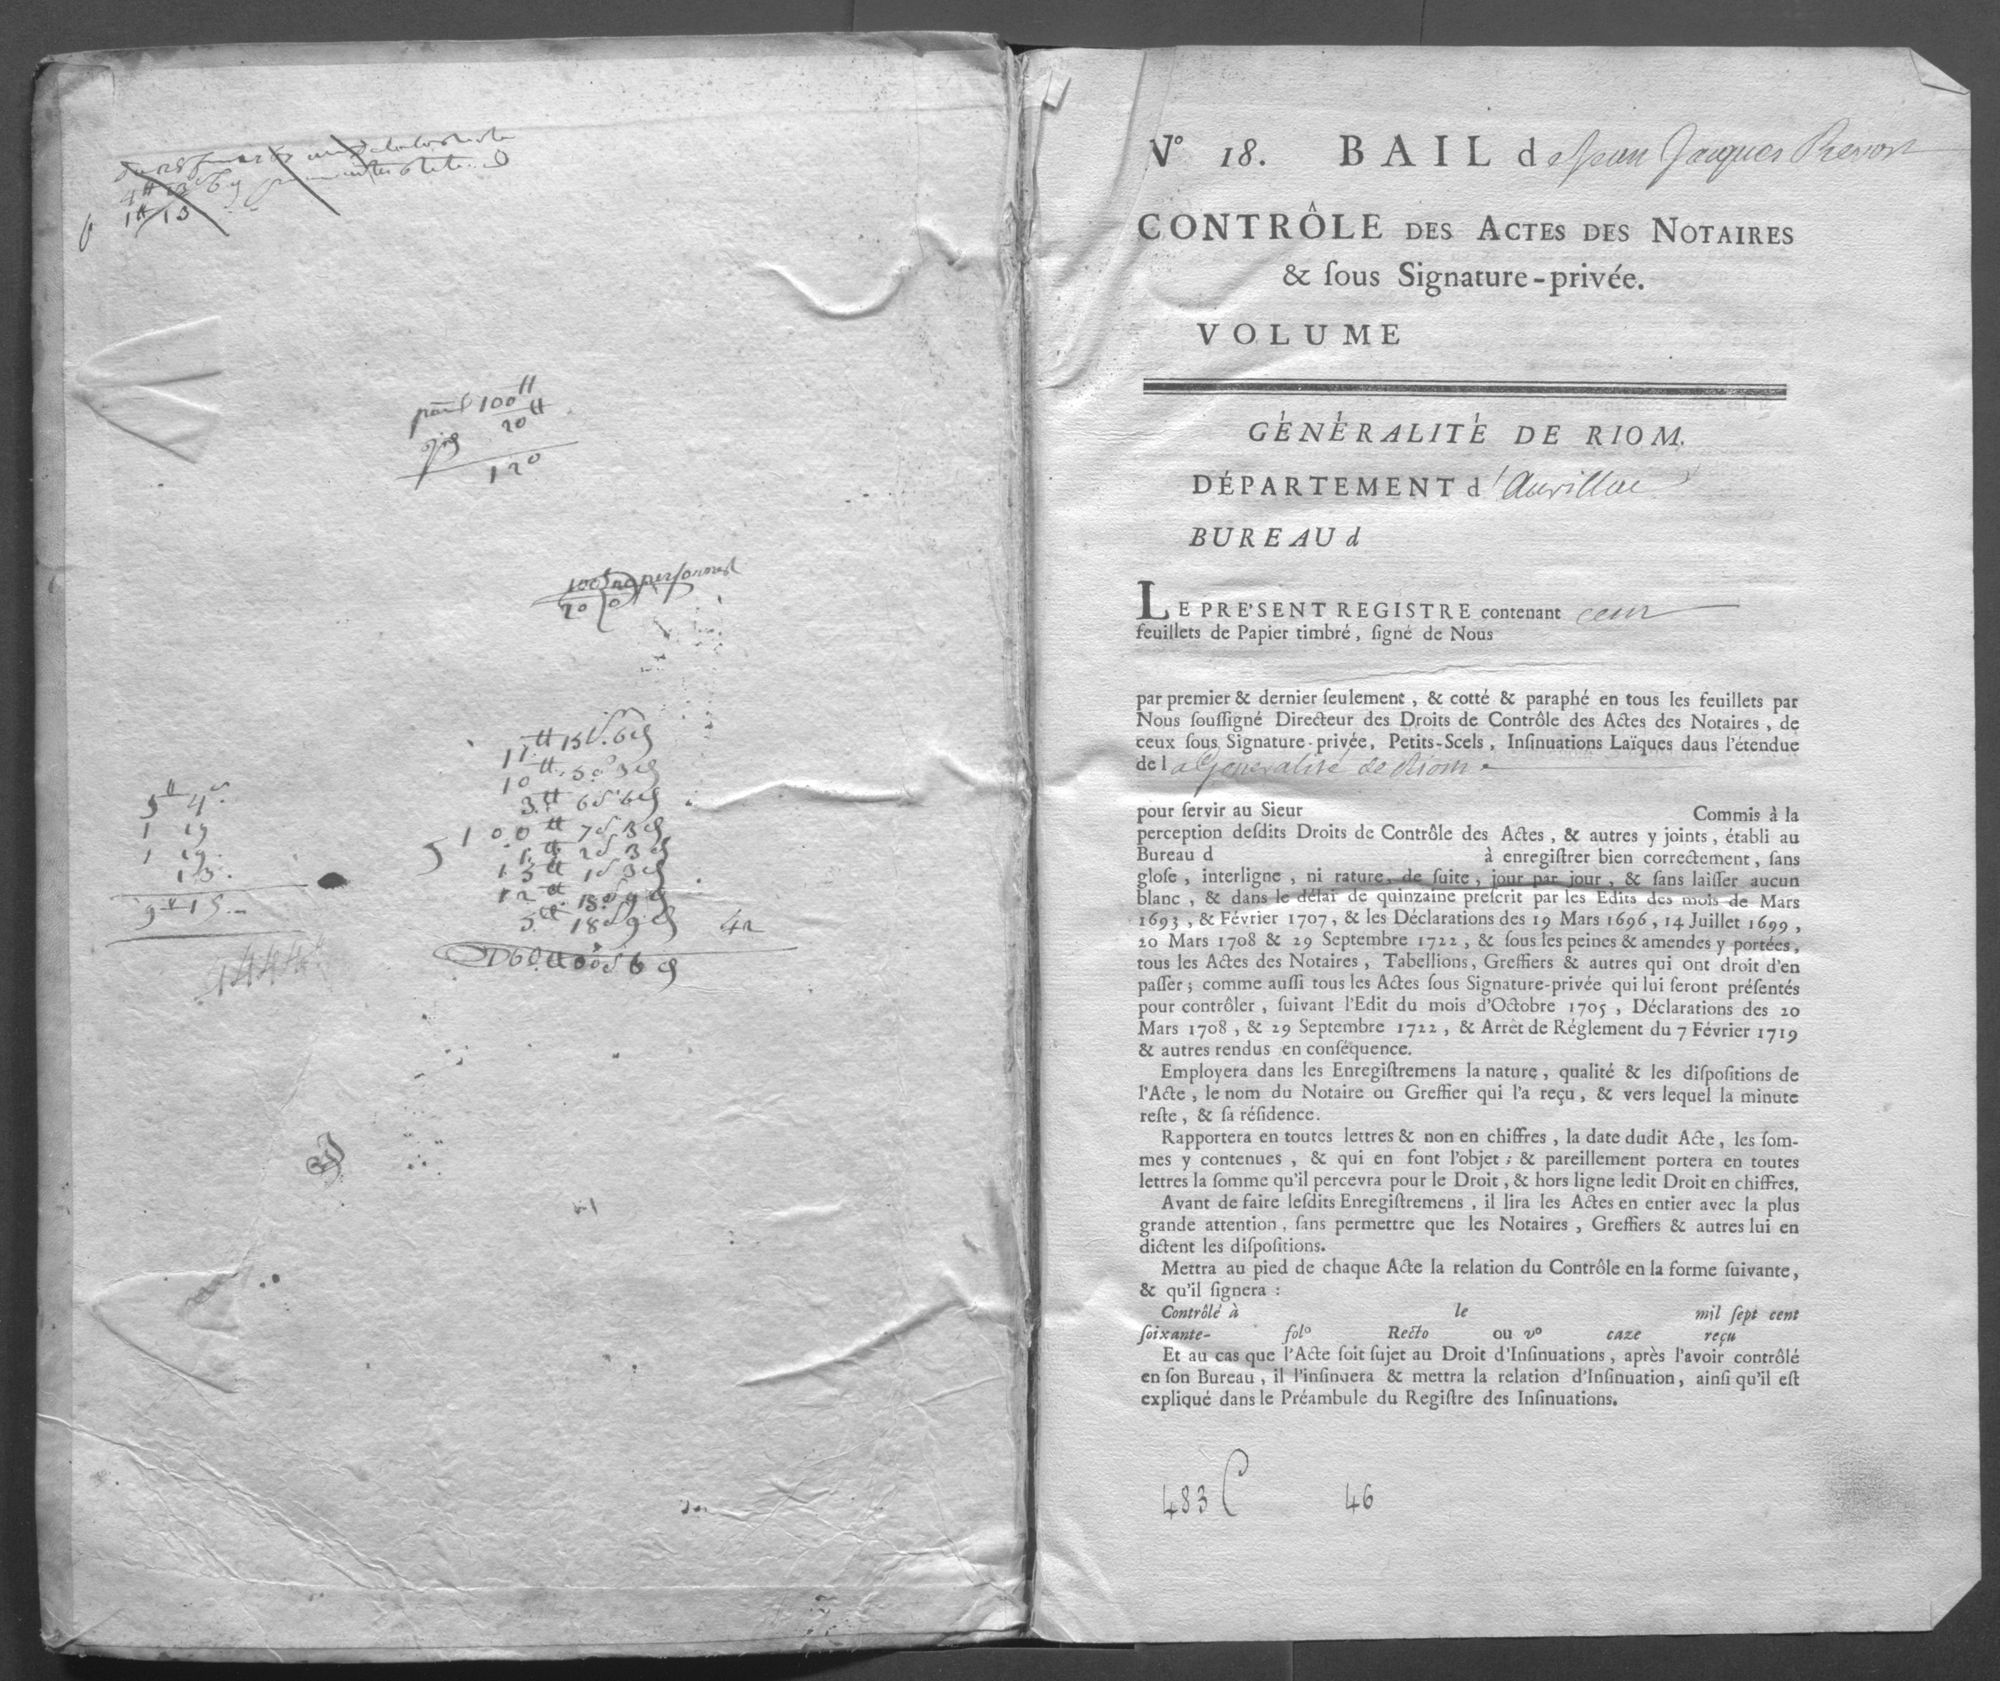 6
1tt 13
part 100tt
20tt
120
100
20
11tt 15s. 6d
10tt. 5s 3d
3tt 6s 6d
100tt 7s 3d
5
1tt. 2s 3d
13tt 1s 3d
12tt 18s 9d
5tt 18s 9d
42
5tt 4s.
1 19
1 19.
13.
9tt 15.
1444
N° 18. BAIL de Jean Jacques Prevost
CONTRÔLE DES ACTES DES NOTAIRES
& ſous Signature-privée.
VOLUME
GÉNÉRALITÉ DE RIOM.
DÉPARTEMENT d'Aurillac
BUREAU d
LE PRE'SENT REGISTRE contenant cent
feuillets de Papier timbré, ſigné de Nous
par premier & dernier ſeulement, & cotté & paraphé en tous les feuillets par
Nous ſouſſigné Directeur des Droits de Contrôle des Actes des Notaires, de
ceux ſous Signature-privée, Petits-Scels, Inſinuations Laïques daus l'étendue
de la Generalité de Riom.
pour ſervir au Sieur Commis à la
perception deſdits Droits de Contrôle des Actes, & autres y joints, établi au
Bureau d à enregiſtrer bien correctement, ſans
gloſe, interligne, ni rature, de ſuite, jour par jour, & ſans laiſſer aucun
blanc, & dans le délai de quinzaine preſcrit par les Edits des mois de Mars
1693, & Février 1707, & les Déclarations des 19 Mars 1696, 14 Juillet 1699,
20 Mars 1708 & 29 Septembre 1722, & ſous les peines & amendes y portées,
tous les Actes des Notaires, Tabellions, Greffiers & autres qui ont droit d'en
paſſer; comme auſſi tous les Actes ſous Signature-privée qui lui ſeront préſentés
pour contrôler, ſuivant l'Edit du mois d'Octobre 1705, Déclarations des 20
Mars 1708, & 29 Septembre 1722, & Arrêt de Réglement du 7 Février 1719
& autres rendus en conſéquence.
Employera dans les Enregiſtremens la nature, qualité & les diſpoſitions de
l'Acte, le nom du Notaire ou Greffier qui l'a reçu, & vers lequel la minute
reſte, & ſa réſidence.
Rapportera en toutes lettres & non en chiffres, la date dudit Acte, les ſom-
mes y contenues, & qui en font l'objet; & pareillement portera en toutes
lettres la ſomme qu'il percevra pour le Droit, & hors ligne ledit Droit en chiffres.
Avant de faire leſdits Enregiſtremens, il lira les Actes en entier avec la plus
grande attention, ſans permettre que les Notaires, Greffiers & autres lui en
dictent les diſpoſitions.
Mettra au pied de chaque Acte la relation du Contrôle en la forme ſuivante,
& qu'il ſignera :
Contrôlé à le mil ſept cent
ſoixante- folo Recto ou vo caze reçu
Et au cas que l'Acte ſoit ſujet au Droit d'Inſinuations, après l'avoir contrôlé
en ſon Bureau, il l'inſinuera & mettra la relation d'Inſinuation, ainſi qu'il eſt
expliqué dans le Préambule du Regiſtre des Inſinuations.
483 C 46